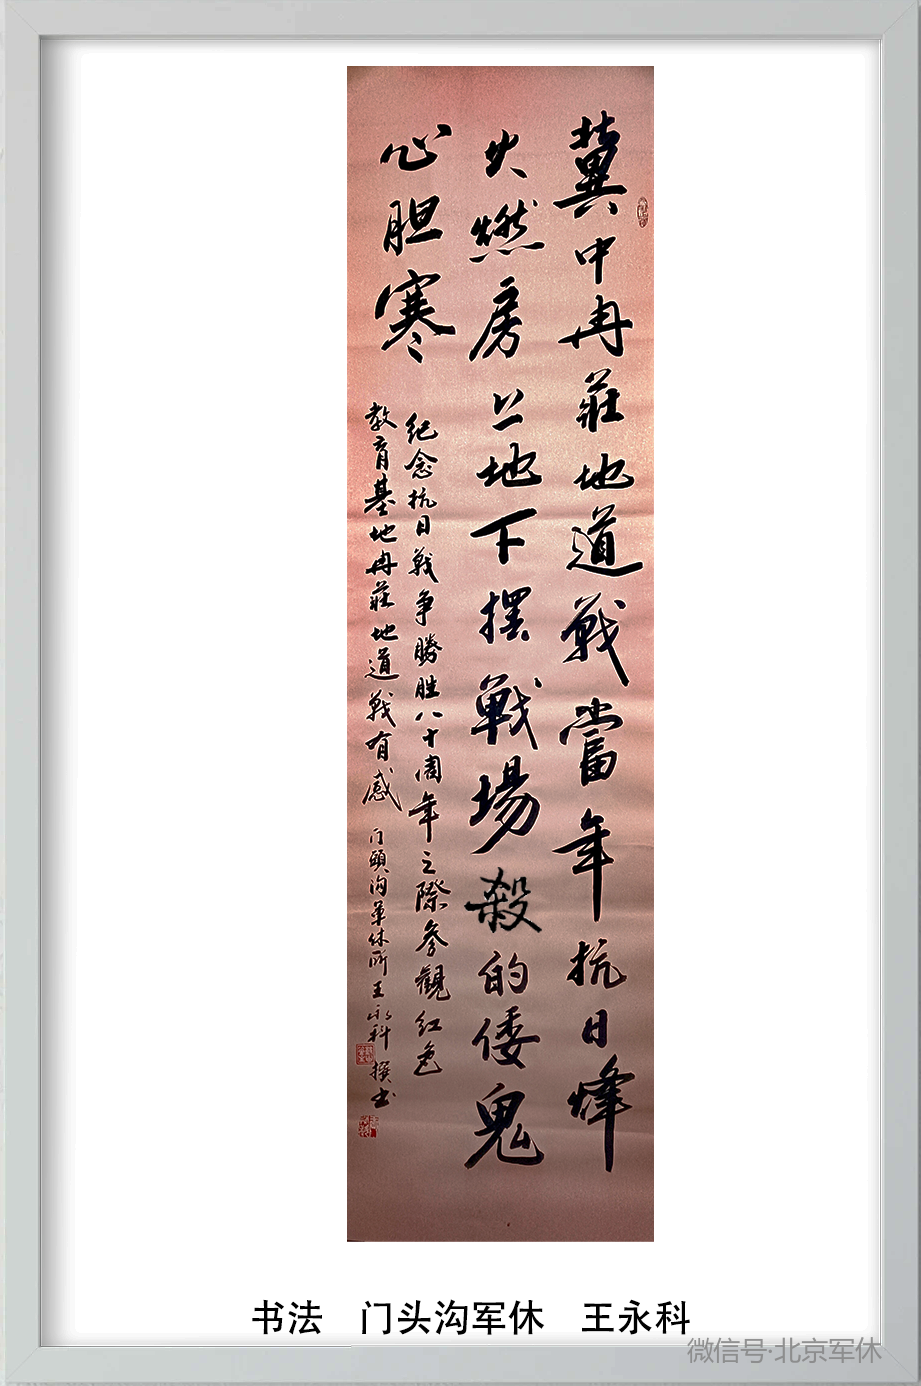 冀中冉莊地道戰當年抗日烽
火燃房上地下摆戰場殺的倭鬼
心胆寒
纪念抗日戰争勝胜八十周年之際参觀红色
教育基地冉莊地道戰有感
门頭沟军休所王永科 撰书
书法 门头沟军休 王永科
微信号·北京军休